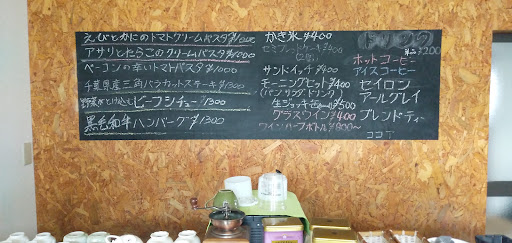 えびとかにのトマトクリームパスタ ¥1000
アサリとたらこのクリームパスタ ¥1000
ベーコンの辛いトマトパスタ ¥1000
千葉県産三角バラカットステーキ ¥1300
野菜がとけ込んだビーフシチュー ¥1300
黒毛和牛ハンバーグ ¥1300
かき氷 ¥400
¥400
サンドイッチ ¥400
モーニングセット ¥400
(パン サラダ ドリンク)
生ジョッキビール ¥500
グラスワイン ¥400
ワインハーフボトル ¥800〜
ドリンク
¥200
ホットコーヒー
アイスコーヒー
セイロン
アールグレイ
ブレンドティー
ココア